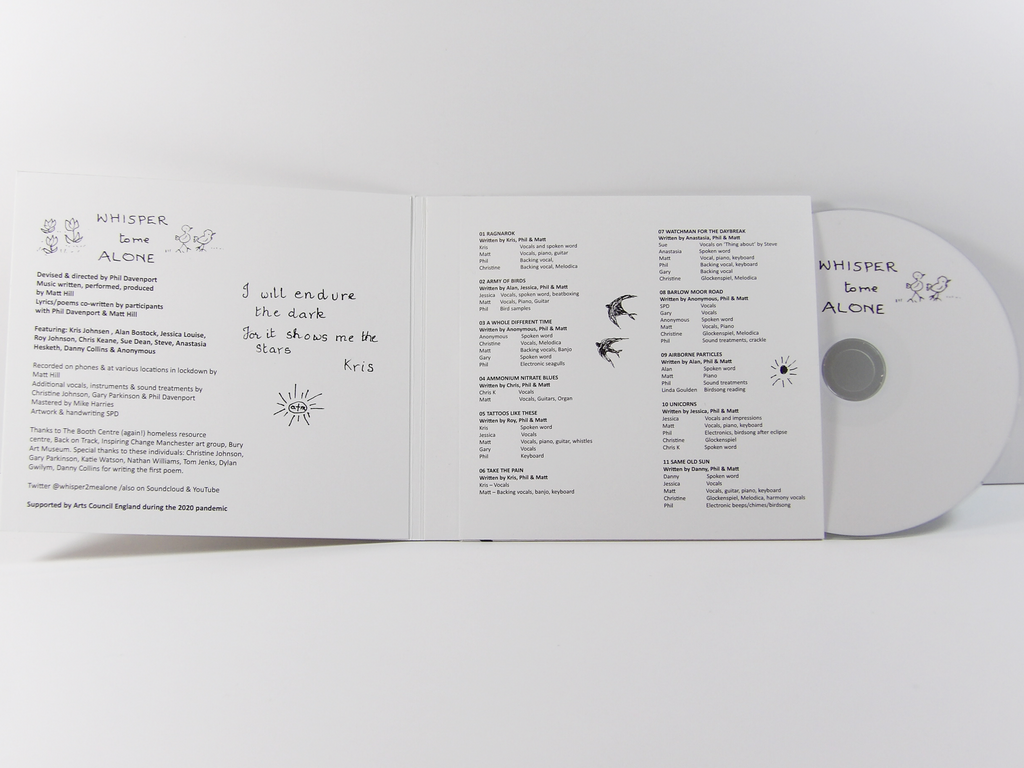 WHISPER
to me
ALONE
Devised & directed by Phil Davenport
Music written, performed, produced
by Matt Hill
Lyrics/poems co-written by participants
with Phil Davenport & Matt Hill
Featuring: Kris Johnsen , Alan Bostock, Jessica Louise,
Roy Johnson, Chris Keane, Sue Dean, Steve, Anastasia
Hesketh, Danny Collins & Anonymous
Recorded on phones & at various locations in lockdown by
Matt Hill
Additional vocals, instruments & sound treatments by
Christine Johnson, Gary Parkinson & Phil Davenport
Mastered by Mike Harries
Artwork & handwriting SPD
Thanks to The Booth Centre (again!) homeless resource
centre, Back on Track, Inspiring Change Manchester art group, Bury
Art Museum. Special thanks to these individuals: Christine Johnson,
Gary Parkinson, Katie Watson, Nathan Williams, Tom Jenks, Dylan
Gwilym, Danny Collins for writing the first poem.
Twitter @whisper2mealone /also on Soundcloud & YouTube
Supported by Arts Council England during the 2020 pandemic
I will endure
the dark
For it shows me the
stars
Kris
01 RAGNAROK
Written by Kris, Phil & Matt
Kris Vocals and spoken word
Matt Vocals, piano, guitar
Phil Backing vocal,
Christine Backing vocal, Melodica
02 ARMY OF BIRDS
Written by Alan, Jessica, Phil & Matt
Jessica Vocals, spoken word, beatboxing
Matt Vocals, Piano, Guitar
Phil Bird samples
03 A WHOLE DIFFERENT TIME
Written by Anonymous, Phil & Matt
Anonymous Spoken word
Christine Vocals, Melodica
Matt Backing vocals, Banjo
Gary Spoken word
Phil Electronic seagulls
04 AMMONIUM NITRATE BLUES
Written by Chris, Phil & Matt
Chris K Vocals
Matt Vocals, Guitars, Organ
05 TATTOOS LIKE THESE
Written by Roy, Phil & Matt
Kris Spoken word
Jessica Vocals
Matt Vocals, piano, guitar, whistles
Gary Vocals
Phil Keyboard
06 TAKE THE PAIN
Written by Kris, Phil & Matt
Kris – Vocals
Matt – Backing vocals, banjo, keyboard
07 WATCHMAN FOR THE DAYBREAK
Written by Anastasia, Phil & Matt
Sue Vocals on 'Thing about' by Steve
Anastasia Spoken word
Matt Vocal, piano, keyboard
Phil Backing vocal, keyboard
Gary Backing vocal
Christine Glockenspiel, Melodica
08 BARLOW MOOR ROAD
Written by Anonymous, Phil & Matt
SPD Vocals
Gary Vocals
Anonymous Spoken word
Matt Vocals, Piano
Christine Glockenspiel, Melodica
Phil Sound treatments, crackle
09 AIRBORNE PARTICLES
Written by Alan, Phil & Matt
Alan Spoken word
Matt Piano
Phil Sound treatments
Linda Goulden Birdsong reading
10 UNICORNS
Written by Jessica, Phil & Matt
Jessica Vocals and impressions
Matt Vocals, piano, keyboard
Phil Electronics, birdsong after eclipse
Christine Glockenspiel
Chris K Spoken word
11 SAME OLD SUN
Written by Danny, Phil & Matt
Danny Spoken word
Jessica Vocals
Matt Vocals, guitar, piano, keyboard
Christine Glockenspiel, Melodica, harmony vocals
Phil Electronic beeps/chimes/birdsong
WHISPER
to me
ALONE